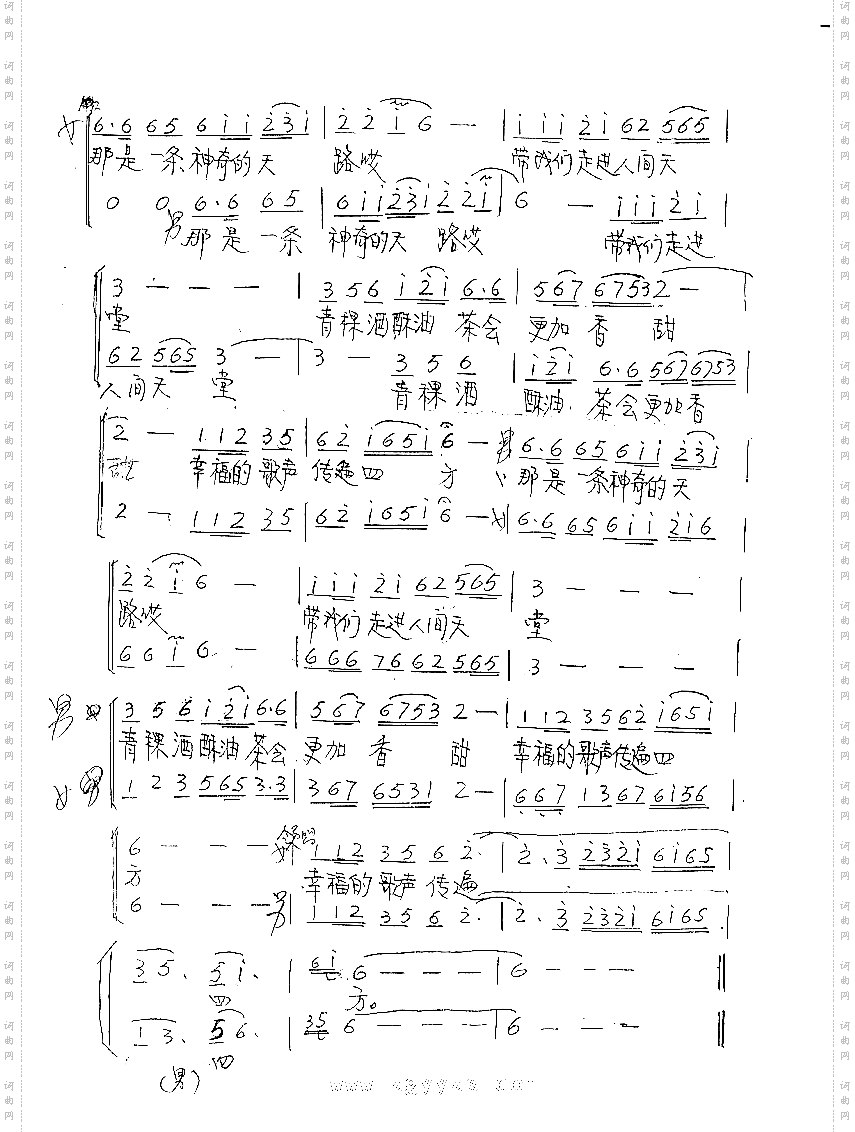 女 6·6 65 6i i 2̇3̇i | 2̇ 2̇ i 6 — | i i i 2̇i 62 565 |
那是一条神奇的天 路哎 带我们走进人间天
0 0 6·6 65 | 6i i 2̇3̇i 2̇ 2̇ i | 6 — i i i 2̇i |
男 那是一条 神奇的天 路哎 带我们走进
3 — — — | 3 5 6 i2̇i 6·6 | 567 6753 2 — |
堂 青稞酒酥油 茶会 更加 香 甜
62 565 3 — | 3 — 3 5 6 | i2̇i 6·6 567 6753 |
人间天 堂 青稞酒 酥油 茶会更加香
2 — 112 35 | 62̇ i65i 6 — | 6·6 65 6i i 2̇3̇i |
甜 幸福的歌声 传遍四 方 男 那是一条神奇的天
2 — 112 35 | 62̇ i65i 6 — | 女 6·6 65 6i i 2̇i6 |
2̇ 2̇ i 6 — | i i i 2̇i 62 565 | 3 — — — |
路哎 带我们走进人间天 堂
6 6 i 6 — | 666 76 62 565 | 3 — — — |
男 3 5 6 i2̇i 6·6 | 567 6753 2 — | 112 3562̇ i65i |
青稞酒酥油茶会 更加 香 甜 幸福的歌声传遍四
女 1 2 3 565 3·3 | 367 6531 2 — | 667 1367 6156 |
6 — — — | 112 35 6 2̇· | 2̇· 3̇ 2̇3̇2̇i 6i65 |
方 幸福的歌声传遍
6 — — — 男 | 112 35 6 2̇· | 2̇· 3̇ 2̇3̇2̇i 6i65 |
3 5· 5 i· | 6i 6 — — — | 6 — — — ‖
四 方。
1 3· 5 6· | 35 6 — — — | 6 — — — ‖
(男) 四
词曲网